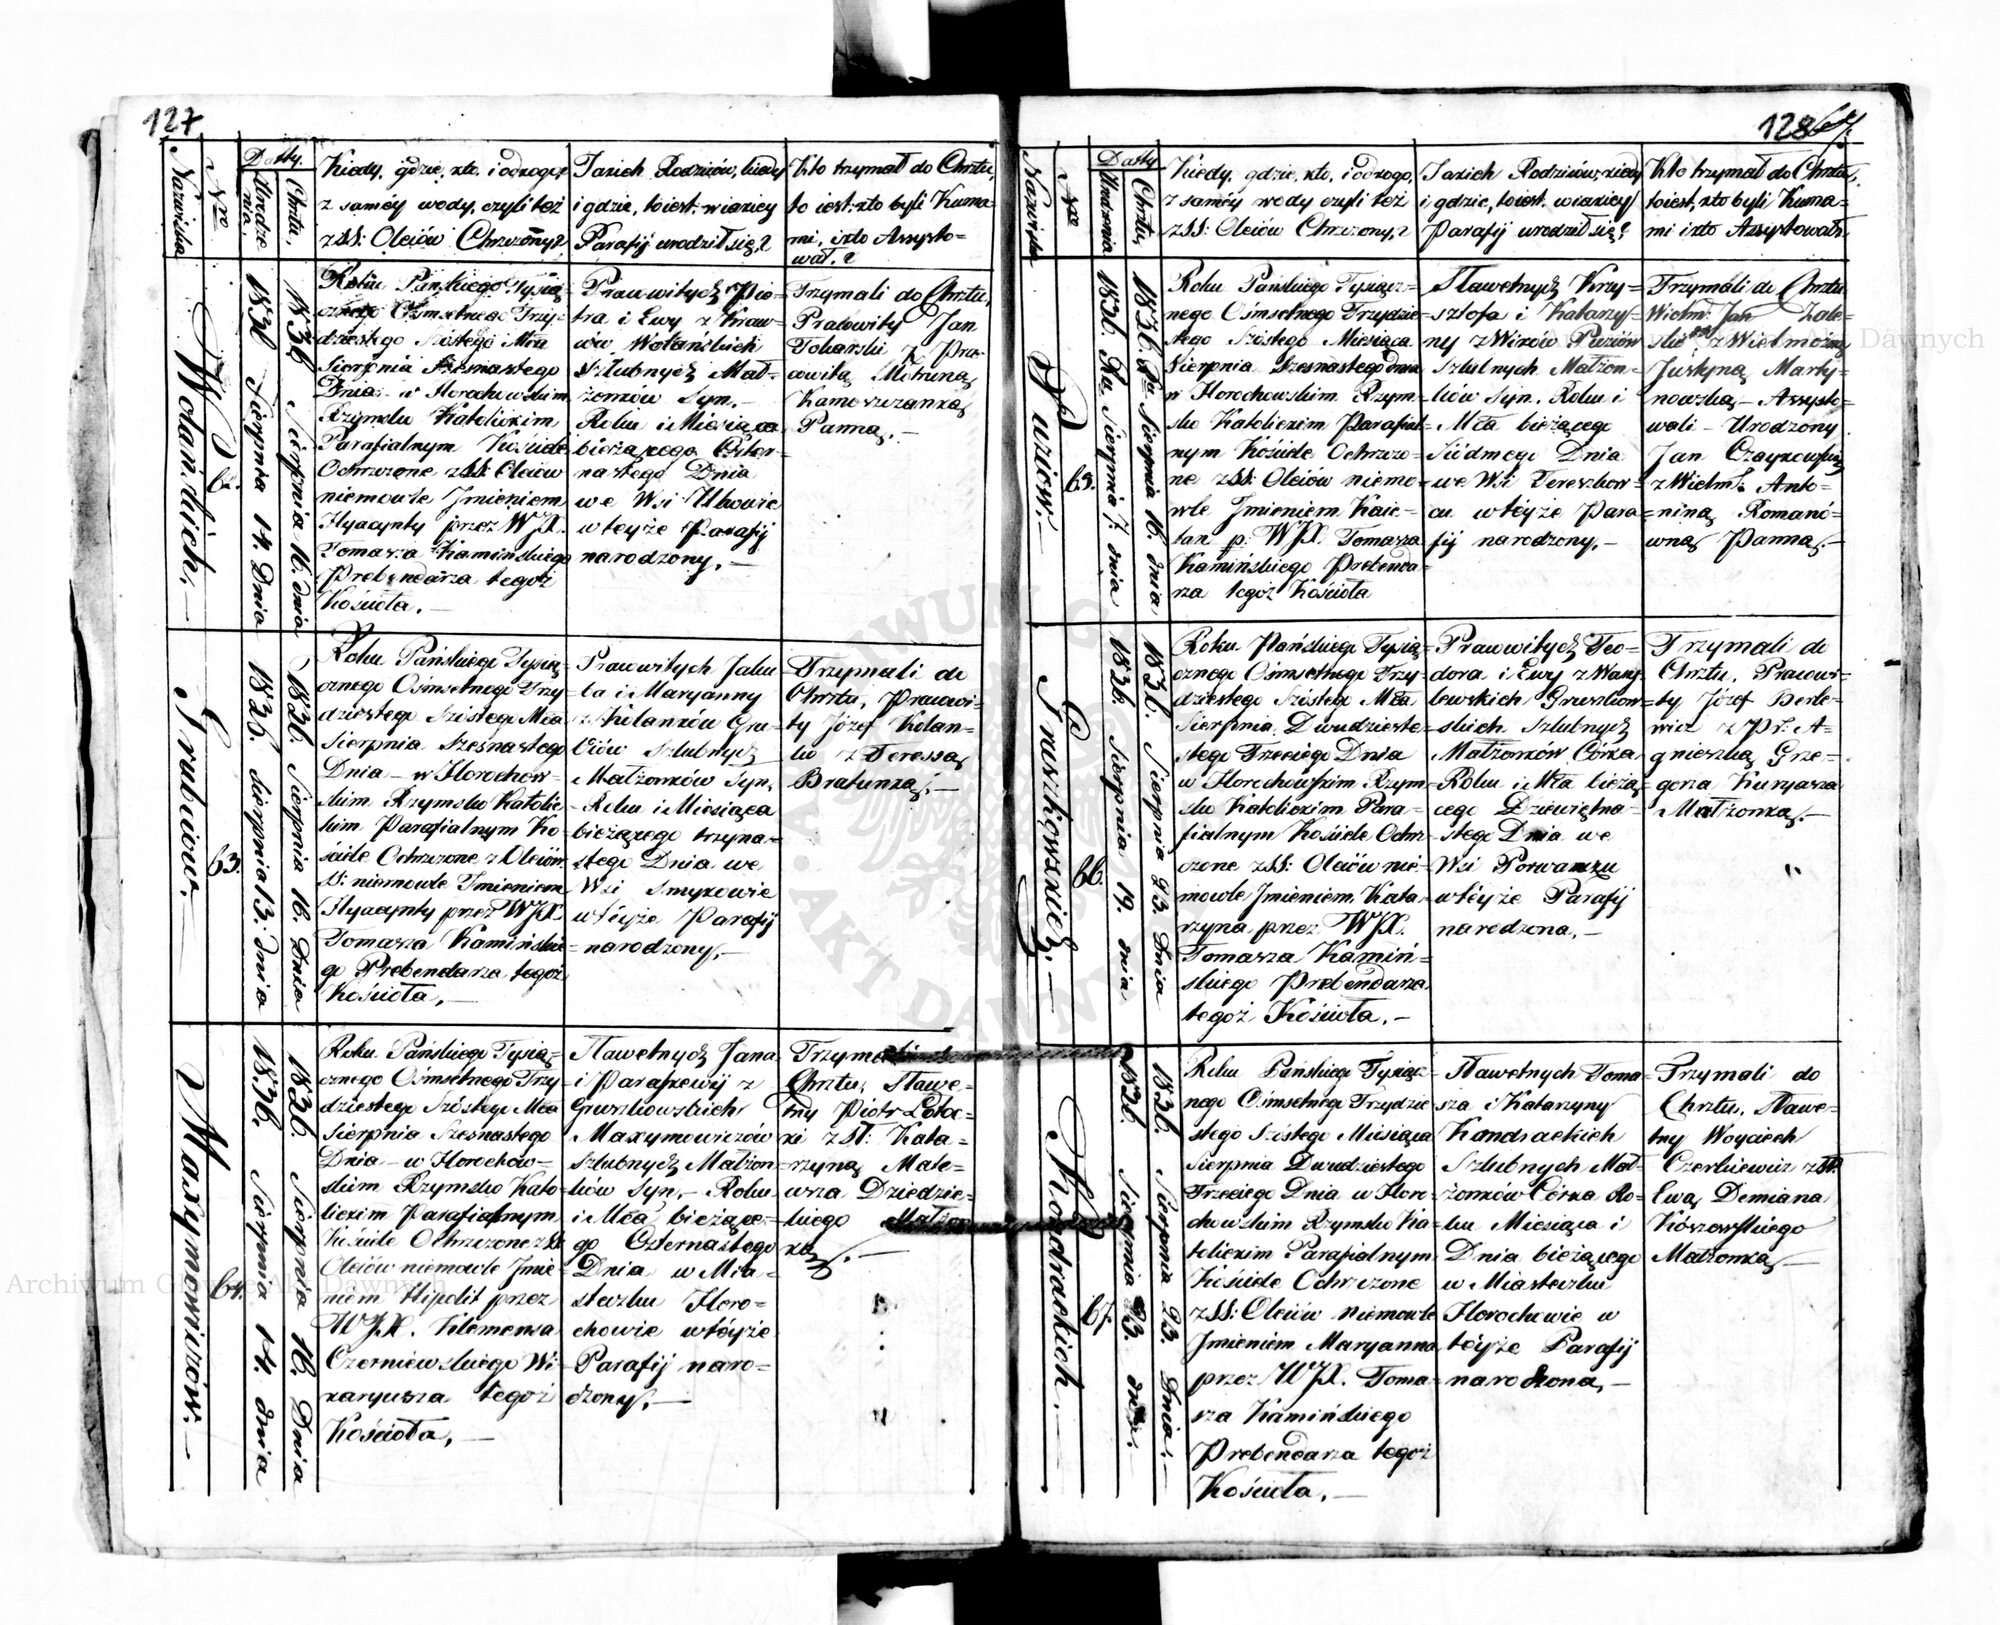 127
Nazwiska
Nro
Datty.
Urodze
nia.
Chrztu,
Kiedy, gdzie, kto, i od kogo,
z samey wody, czyli też
z SS: Oleiów Chrzczony?
Jakich Rodziców, kiedy
i gdzie, to iest: w iakiey
Parafij urodził się,?
Kto trzymał do Chrztu,
to iest: kto byli Kuma=
mi, i kto Assysto=
wał.?
Wolańskich. —
62.
1836 Sierpnia 14. Dnia
1836 Sierpnia 16. dnia
Roku Pańskiego Tysią=
cznego Ośmsetnego Trzy=
dziestego Szóstego Mca
Sierpnia Szesnastego
Dnia w Horochowskim
Rzymsko Katolickim
Parafialnym Kościele
Ochrzczone z SS: Oleiów
niemowle Jmieniem
Hyacynty przez WJX.
Tomasza Kamińskiego
Prebendarza tegoż
Kościoła. —
Prawowitych Pio=
tra i Ewy z Kraw=
ów Wolańskich
Szlubnych Mał=
żonków Syn. —
Roku i Miesiąca
bieżącego Czter=
nastego Dnia
we Wsi
w téyże Parafij
narodzony. —
Trzymali do Chrztu,
Pracowity Jan
Tokarski z Pra=
cowitą
Panną. —
Grubiów. —
63.
1836. Sierpnia 13. dnia
1836. Sierpnia 16. Dnia
Roku Pańskiego Tysią=
cznego Ośmsetnego Trzy=
dziestego Szóstego Mca
Sierpnia Szesnastego
Dnia — w Horochow=
skim Rzymsko Katolic=
kim Parafialnym Ko=
ściele Ochrzczone z Oleiów
SS: niemowle Jmieniem
Hyacynty przez WJX.
Tomasza Kamińskie=
go Prebendarza tegoż
Kościoła. —
Prawowitych Jaku=
ba i Maryanny
z Gru=
biów Szlubnych
Małżonków Syn,
Roku i Miesiąca
bieżącego trzyna=
stego Dnia we
Wsi Smykowie
w téyże Parafij
narodzony. —
Trzymali do
Chrztu, Pracowi=
ty Józef Kolan=
ko z Teressą
Bratunką. —
Maxymowiczów. —
64.
1836. Sierpnia 14. dnia
1836. Sierpnia 16. Dnia
Roku Pańskiego Tysią=
cznego Ośmsetnego Trzy=
dziestego Szóstego Mca
Sierpnia Szesnastego
Dnia — w Horochow=
skim Rzymsko Kato=
lickim Parafialnym
Kościele Ochrzczone z SS:
Oleiów niemowle Jmie=
niem Hipolit przez
WJX. Klemensa
Czerniewskiego Wi=
karyusza tegoż
Kościoła. —
Sławetnych Jana
i Paraskewij z
Gruszkowskich
Maxymowiczów
szlubnych Małżon=
ków Syn. — Roku
i Mca bieżące=
go Czternastego
Dnia w Mia=
steczku Horo=
chowie w téyże
Parafij naro=
dzony. —
Trzymali do
Chrztu, Sławe=
tny Piotr
z Sł: Kata=
rzyną Mate=
usza Dziedzic=
kiego Małżon=
ką. —
128
Nazwiska
Nro
Datty
Urodzenia
Chrztu,
Kiedy, gdzie, kto, i od kogo,
z samey wody czyli też
z SS: Oleiów Chrzczony,?
Jakich Rodziców, kiedy
i gdzie, to iest, w iakiey
Parafij urodził się?
Kto trzymał do Chrztu,
to iest, kto byli Kuma=
mi i kto Assystował.
Puziów. —
65.
1836. Ru. Sierpnia 7. dnia
1836. Ru Sierpnia 16. dnia
Roku Pańskiego Tysiącz=
nego Ośmsetnego Trzydzie=
stego Szóstego Miesiąca
Sierpnia Szesnastego dnia
w Horochowskim Rzym=
sko Katolickim Parafial=
nym Kościele Ochrzczo=
ne z SS: Oleiów niemo=
wle Jmieniem Kaie=
tan p. WJX. Tomasza
Kamińskiego Prebenda=
rza tegoż Kościoła
Sławetnych Krzy=
sztofa i Katarzy=
ny z Wixów Puziów
Szlubnych Małżon=
ków Syn. Roku i
Mca bieżącego
Siódmego Dnia
we Wsi Tereszkow=
cu w téyże Para=
fij narodzony. —
Trzymali do Chrztu
Wielm: Jan Zale=
ski z Wielmożną
Justyną Marty=
nowską — Assysto=
wali — Urodzony
Jan Czaykowski
z Wielm: Anto=
niną Romano=
wną Panną. —
Gruszkowskich. —
66.
1836. Sierpnia 19. dnia
1836. Sierpnia 23. Dnia
Roku Pańskiego Tysią=
cznego Ośmsetnego Trzy=
dziestego Szóstego Mca
Sierpnia Dwudzieste=
stego Trzeciego Dnia
w Horochowskim Rzym=
sko Katolickim Para=
fialnym Kościele Ochrz=
czone z SS: Oleiów nie=
mowle Jmieniem Kata=
rzyna przez WJX.
Tomasza Kamiń=
skiego Prebendarza
tegoż Kościoła. —
Prawowitych Teo=
dora i Ewy z Wasy=
lewskich Gruszkow=
skich Szlubnych
Małżonków Córka
Roku i Mca bieżą=
cego Dziewiętna=
stego Dnia we
Wsi Porwańczu
w téyże Parafij
narodzona. —
Trzymali do
Chrztu, Pracowi=
ty Józef Berle=
wicz z Pr: A=
gnieszką Grze=
gorza Kurysza
Małżonką. —
Kondrackich. —
67.
1836. Sierpnia 23. dnia.
1836. Sierpnia 23. Dnia. —
Roku Pańskiego Tysiącz=
nego Ośmsetnego Trzydzie=
stego Szóstego Miesiąca
Sierpnia Dwudziestego
Trzeciego Dnia w Horo=
chowskim Rzymsko Ka=
tolickim Parafialnym
Kościele Ochrzczone
z SS: Oleiów niemowle
Jmieniem Maryanna
przez WJX. Toma=
sza Kamińskiego
Prebendarza tegoż
Kościoła. —
Sławetnych Toma=
sza i Katarzyny
Kondrackich
Szlubnych Mał=
żonków Córka Ro=
ku Miesiąca i
Dnia bieżącego
w Miasteczku
Horochowie w
téyże Parafij
narodzona. —
Trzymali do
Chrztu, Sławe=
tny Woyciech
Czerkiewicz z Sł:
Ewą Demiana
Kószowskiego
Małżonką. —
Archiwum Główne Akt Dawnych